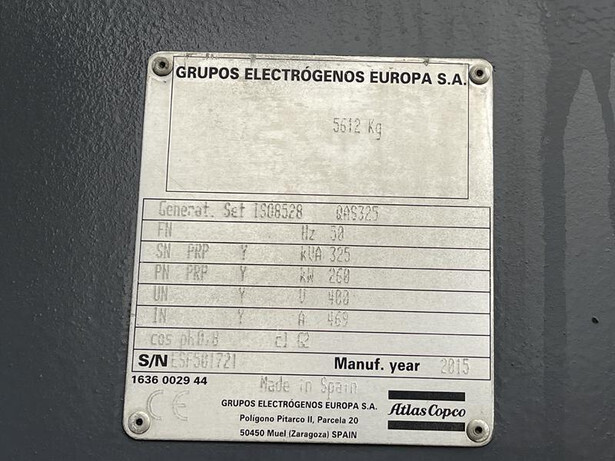 GRUPOS ELECTRÓGENOS EUROPA S.A.
5612 Kg
Generat. Set ISO8528 QAS325
FN Hz 50
SN PRP Y kVA 325
PN PRP Y kW 260
UN Y V 400
IN Y A 469
cos phi0.8 cl G2
S/N ESF501721 Manuf. year 2015
1636 0029 44 Made in Spain
CE GRUPOS ELECTRÓGENOS EUROPA S.A. Atlas Copco
Polígono Pitarco II, Parcela 20
50450 Muel (Zaragoza) SPAIN